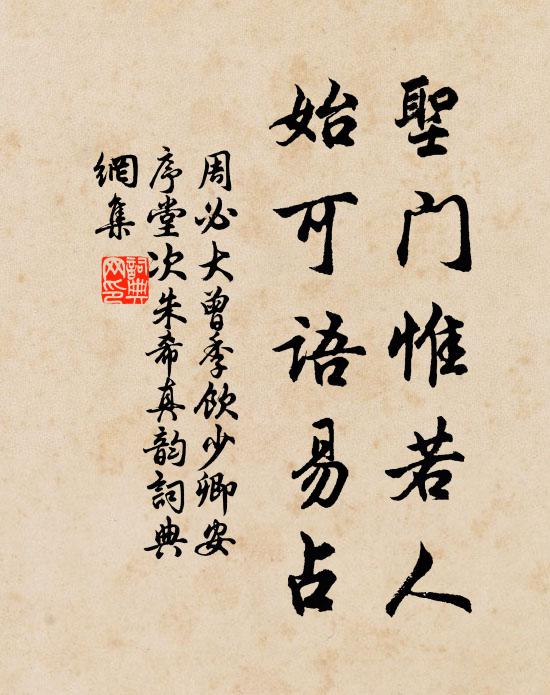 聖門惟若人
始可語易占
周必大曾季飲少卿安
序堂次朱希真韵詞典
網集
詞典
网印